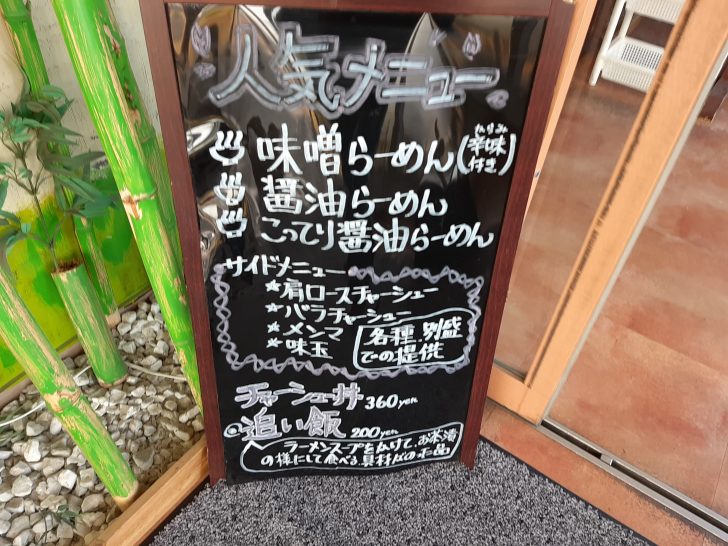 人気メニュー
味噌らーめん(辛味付き)
からみ
醤油らーめん
こってり醤油らーめん
サイドメニュー
*肩ロースチャーシュー
*バラチャーシュー
*メンマ
*味玉
各種、別盛
での提供
チャーシュー丼 360yen
追い飯 200yen
ラーメンスープを
かけて、お茶漬
の様にして食べる、具材
の一品